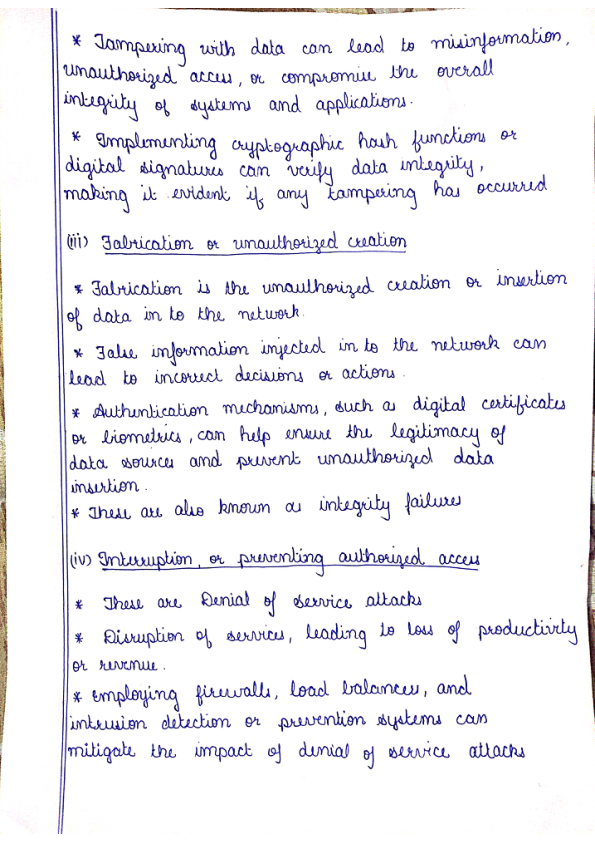 * Tampering with data can lead to misinformation,
unauthorized access, or compromise the overall
integrity of systems and applications.
* Implementing cryptographic hash functions or
digital signatures can verify data integrity,
making it evident if any tampering has occurred
(iii) Fabrication or unauthorized creation
* Fabrication is the unauthorized creation or insertion
of data in to the network.
* False information injected in to the network can
lead to incorrect decisions or actions.
* Authentication mechanisms, such as digital certificates
or biometrics, can help ensure the legitimacy of
data sources and prevent unauthorized data
insertion.
* These are also known as integrity failures
(iv) Interruption, or preventing authorized access
* These are Denial of service attacks
* Disruption of services, leading to loss of productivity
or revenue.
* employing firewalls, load balances, and
intrusion detection or prevention systems can
mitigate the impact of denial of service attacks